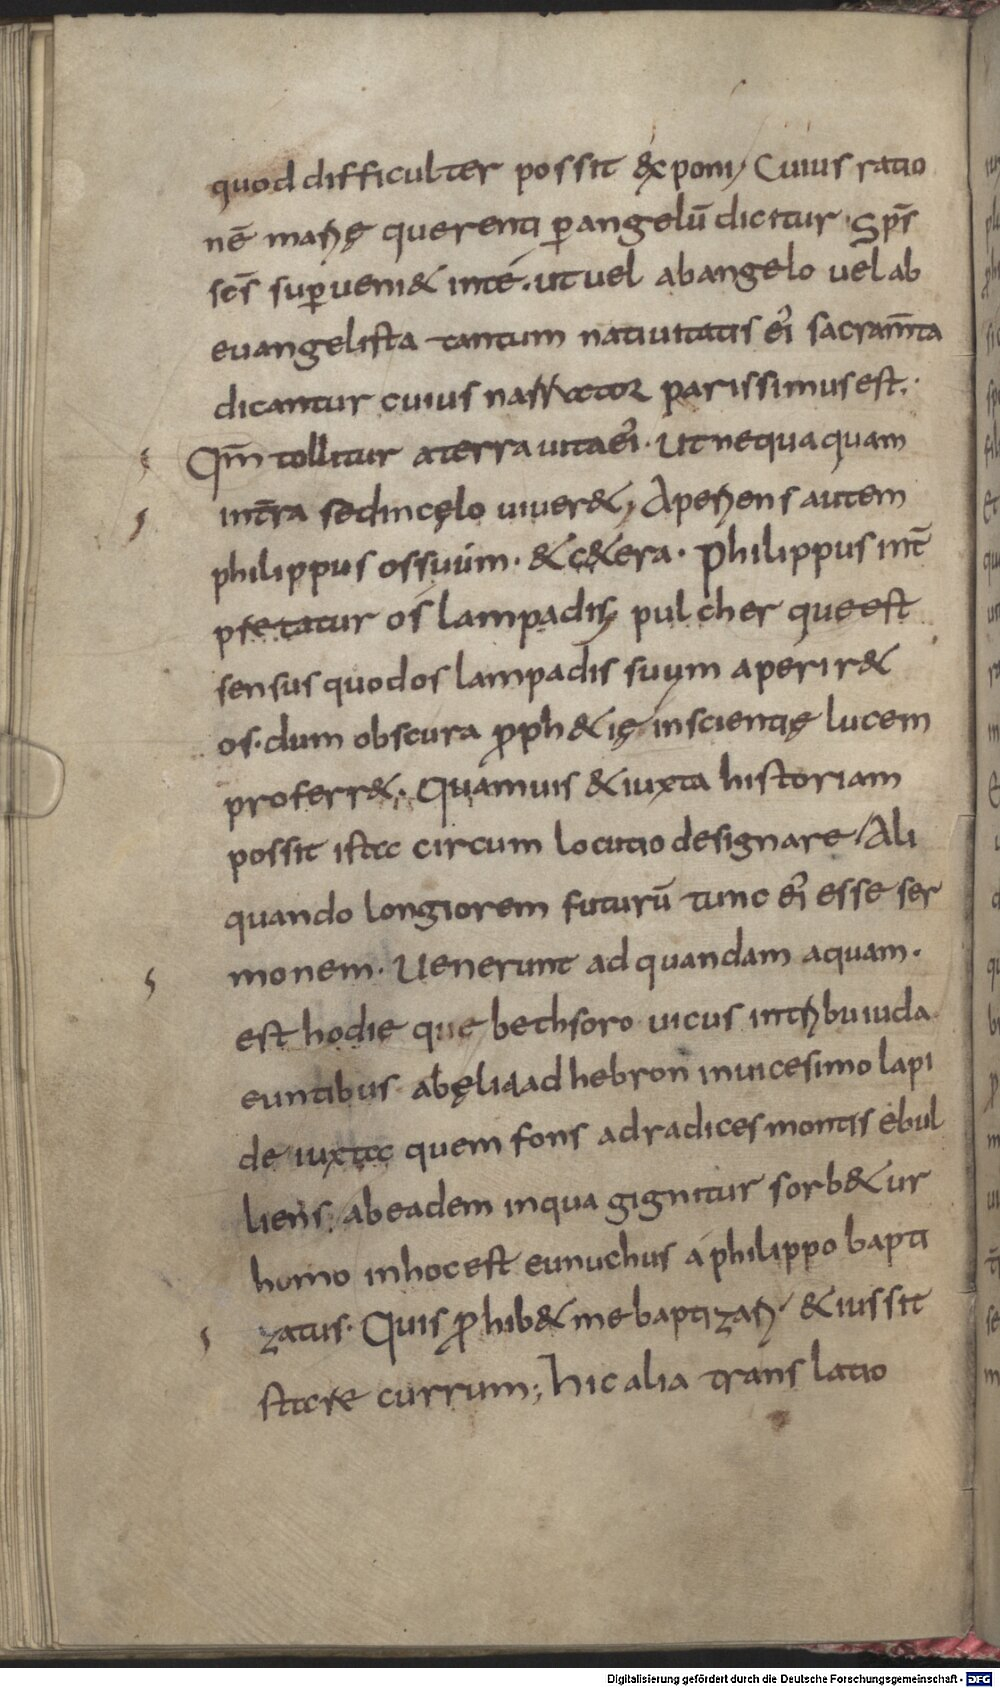 quod difficulter possit &xponi, Cuius ratio
nē marię querenti ꝑ angelū dicitur. Sp̄s
sc̄s suꝑueni& in te. ut vel ab angelo vel ab
evangelista tantum nativitatis ei sacram̄ta
dicantur cuius narrator parissimus est.
Qm̄ tollitur a terra vita ei. Ut nequaquam
in t̄ra sed in cęlo viver&, Aperiens autem
philippus os suum. & c&era. Philippus int̄
pretatur os lampadis, pulcher que est
sensus quod os lampadis suum aperir&
os. dum obscura ꝓph&ię in scientię lucem
proferr&. Quamvis & iuxta historiam
possit ista circum locutio designare Ali
quando longiorem futurū tunc ei esse ser
monem. Venerunt ad quandam aquam.
est hodie que bethsoro vicus in tribu iuda
euntibus ab ęlia ad hebron in vicesimo lapi
de iuxta quem fons ad radices montis ebul
liens, ab eadem in qua gignitur sorb&ur
humo in hoc est eunuchus a philippo bapti
zatus. Quis ꝓhib& me baptizari & iussit
stare currum; hic alia translatio
Digitalisierung gefördert durch die Deutsche Forschungsgemeinschaft - DFG